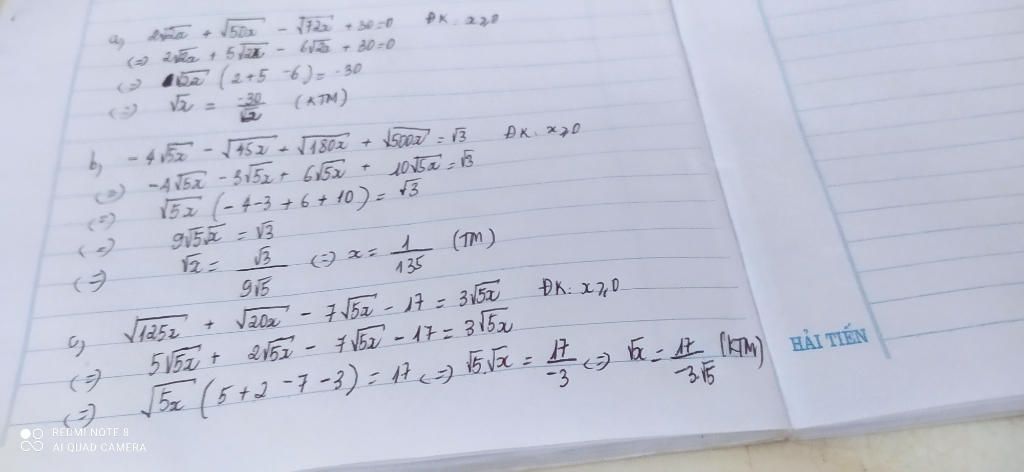 a, 2√2x + √50x - √72x + 30=0 ĐK: x≥0
(=) 2√2x + 5√2x - 6√2x + 30=0
(=) √2x (2+5 -6) = -30
(=) √x = -30/√2 (KTM)
b, -4√5x - √45x + √180x + √500x = √3 ĐK: x≥0
(=) -4√5x - 3√5x + 6√5x + 10√5x = √3
(=) √5x (-4-3+6+10) = √3
(=) 9√5√x = √3
(=) √x = √3/9√5 (=) x = 1/135 (TM)
c, √125x + √20x - 7√5x - 17 = 3√5x ĐK: x≥0
(=) 5√5x + 2√5x - 7√5x - 17 = 3√5x
(=) √5x (5+2-7-3) = 17 (=) √5.√x = 17/-3 (=) √x = 17/-3.√5 (KTM)
HẢI TIẾN
REDMI NOTE 8
AI QUAD CAMERA